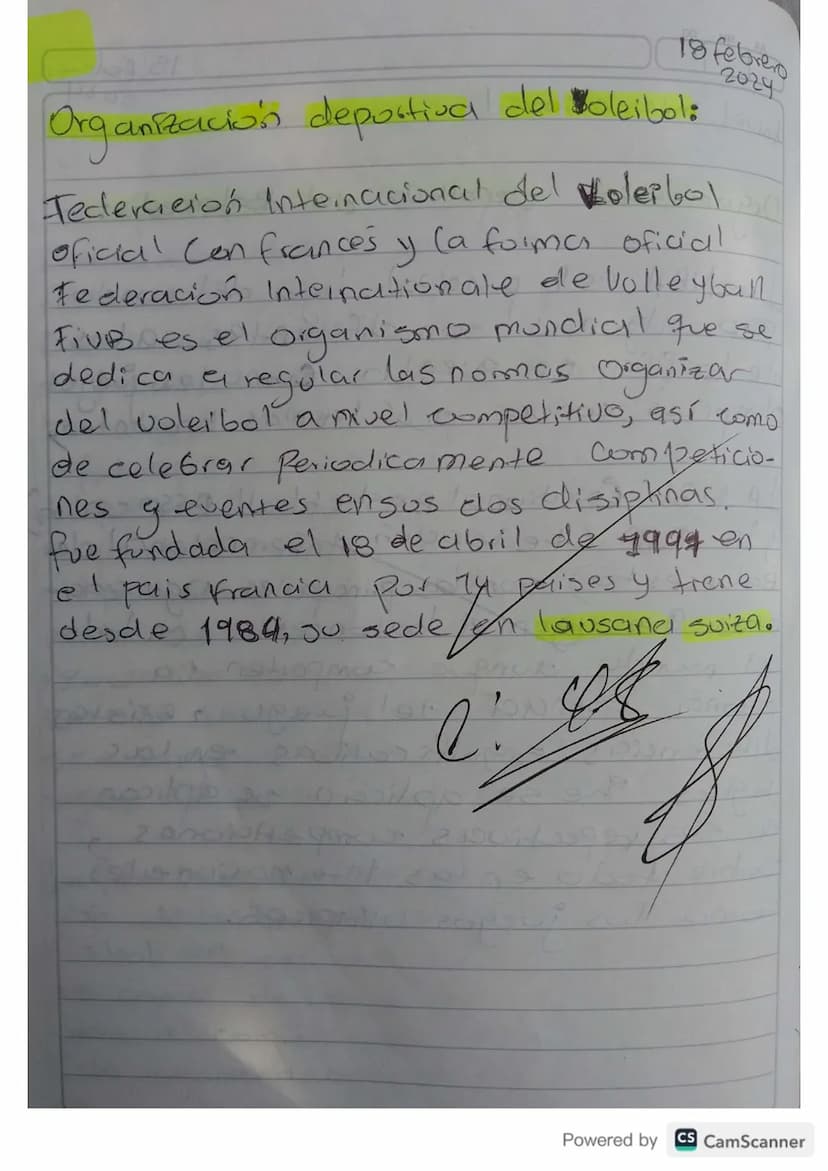 18 febrero
2024
Organización deportiva del Voleibol:
Federacieión Internacional del Voleibol
oficial Cen francés y la forma oficial
Federación Internationale de Volleyball
FIVB es el organismo mundial que se
dedica a regular las normas Organizar
del voleibol a nivel competitivo, así como
de celebrar Periodicamente Competicio-
nes y eventes en sus dos disiplinas.
fue fundada el 18 de abril de 1991 en
el pais francia Por 14 paises y tiene
desde 1984, su sede en lausana suiza.
Powered by CS CamScanner